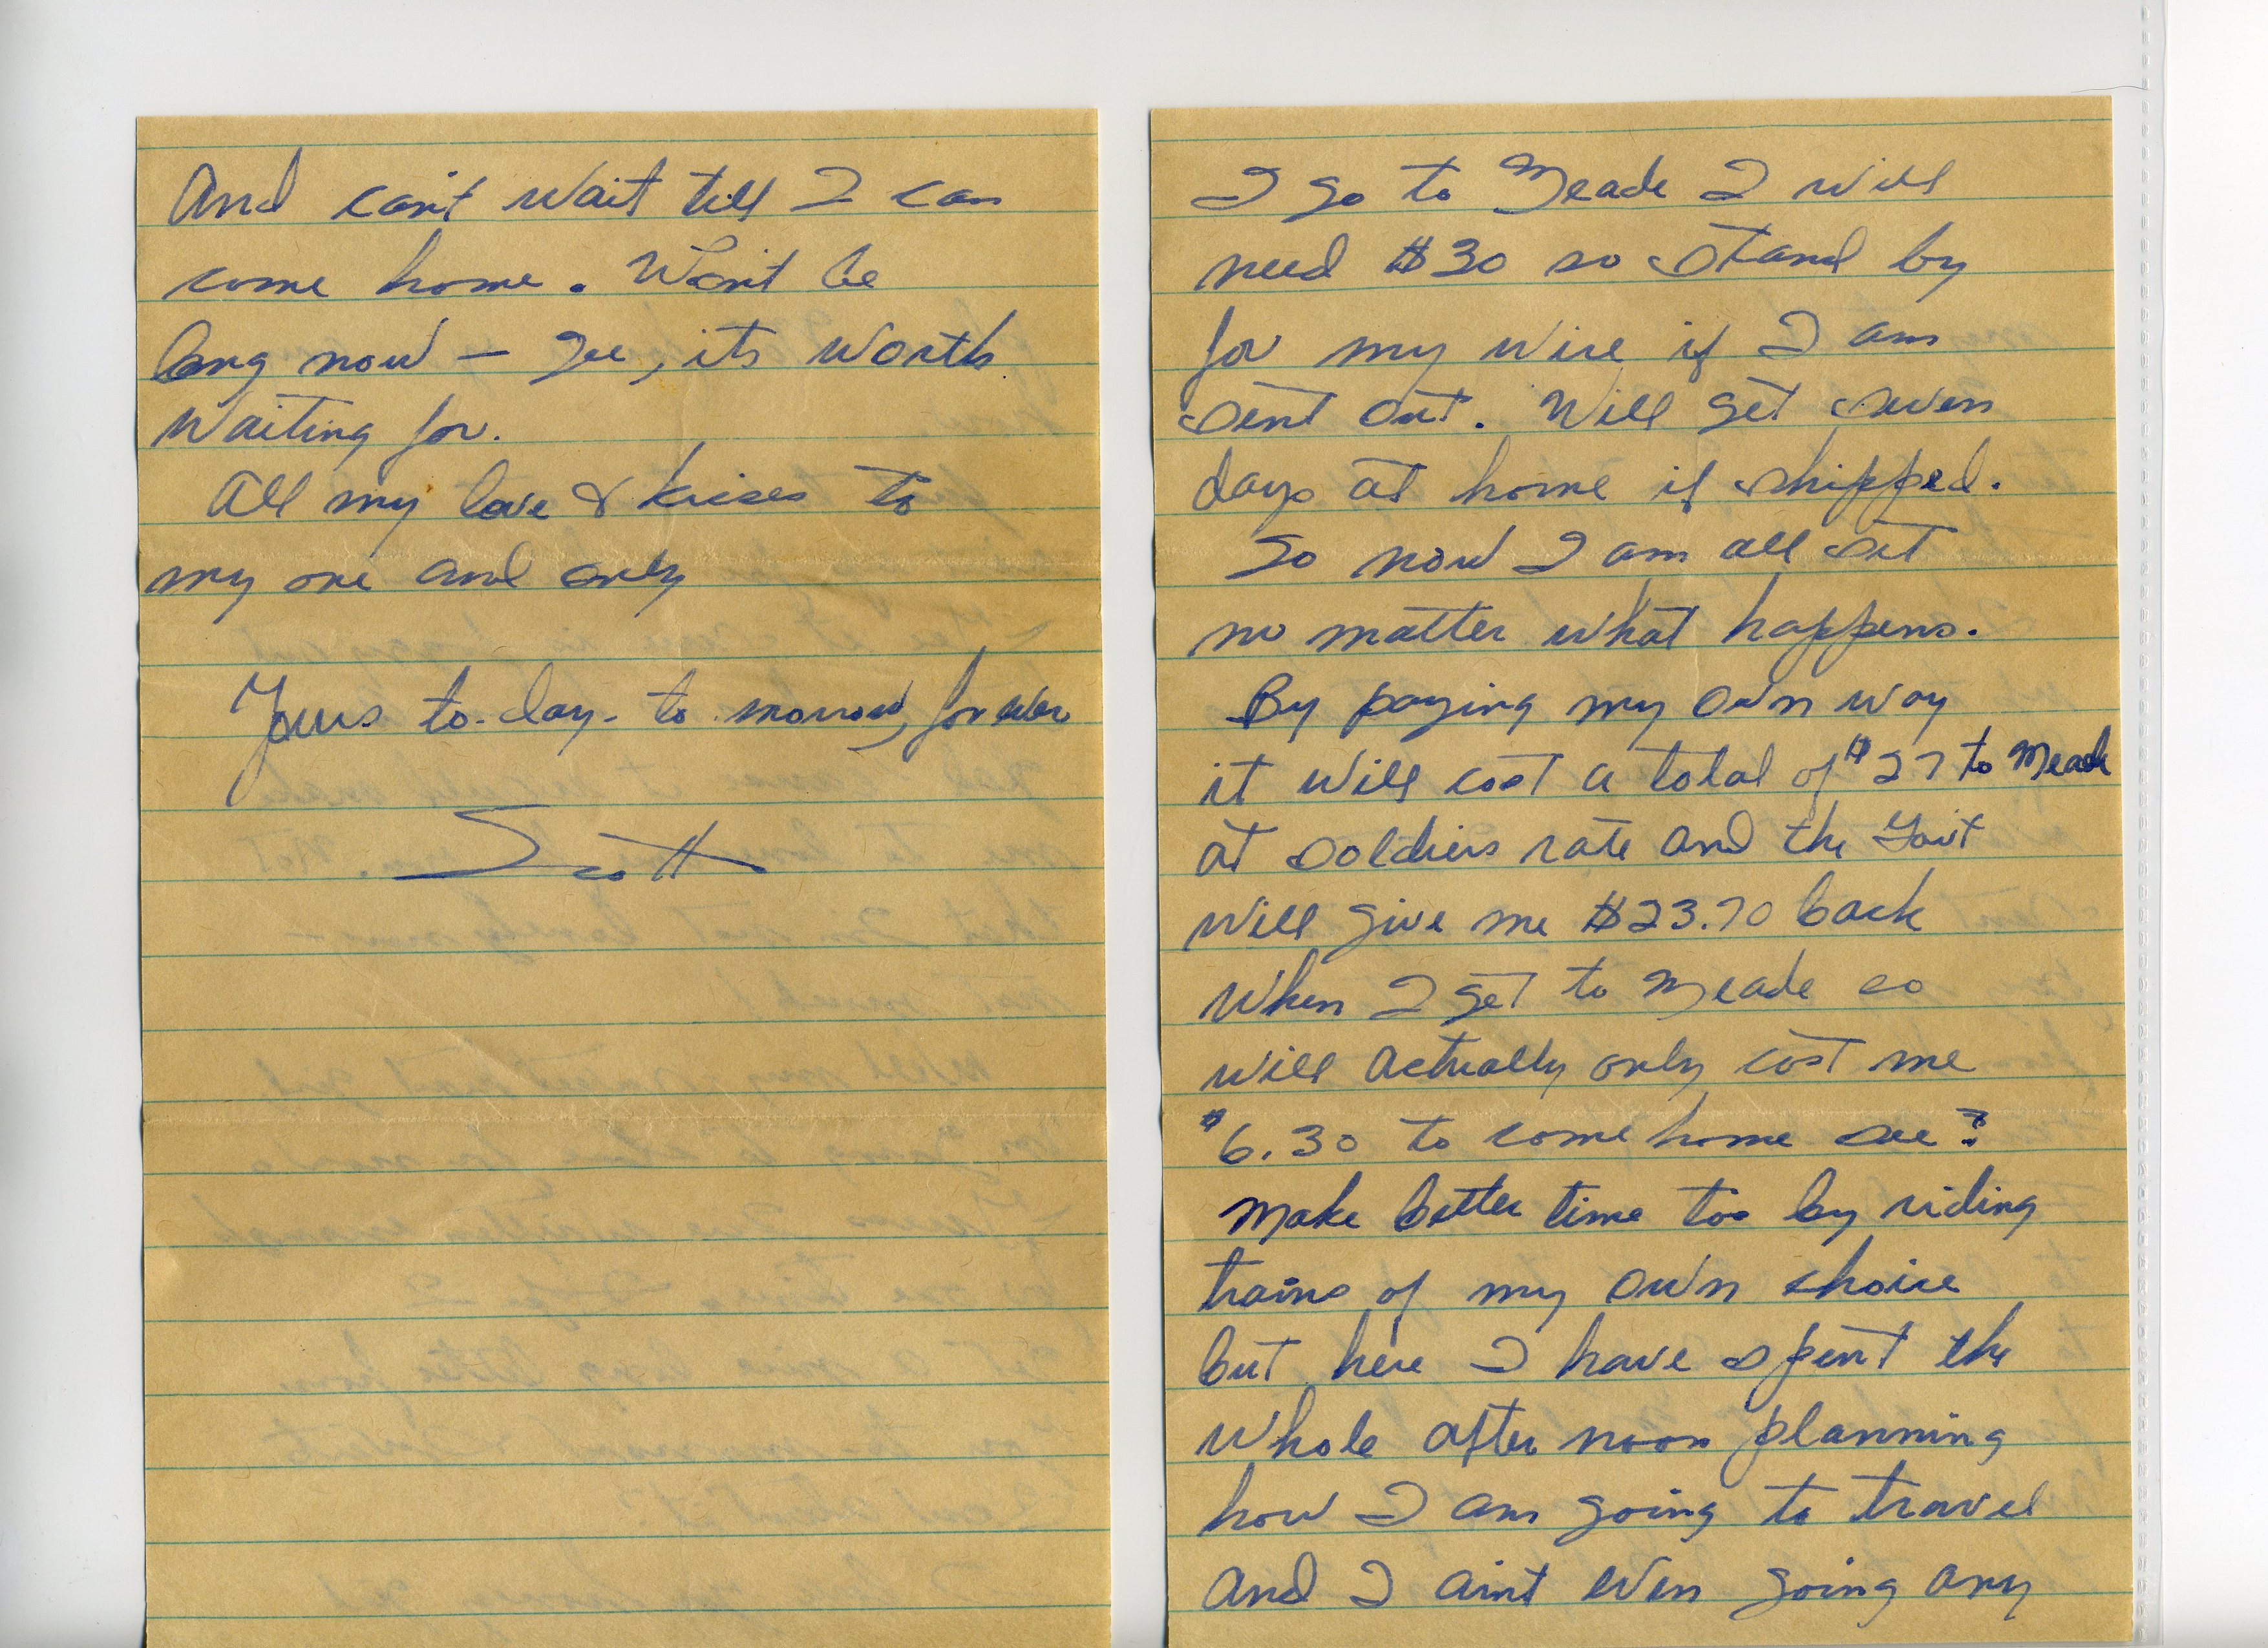 And can't wait till I can
come home. Won't be
long now — Gee, its worth
waiting for.
All my love & kisses to
my one and only
Yours to-day- to morrow, for ever
Scott
I go to Meade I will
need $30 so stand by
for my wire if I am
sent out. Will get seven
days at home if shipped.
So now I am all set
no matter what happens.
By paying my own way
it will cost a total of $27 to Meade
at soldiers rate and the Gov't
will give me $23.70 back
when I get to Meade so
will actually only cost me
$6.30 to come home see?
Make better time too by riding
trains of my own choice
but here I have spent the
whole after noon planning
how I am going to travel
and I aint even going any